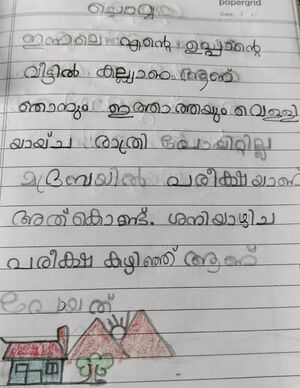 papergrid
Date: / /
ചൊവ്വ
ഇന്നലെ എന്റെ ഉപ്പാന്റെ
വീട്ടിൽ കല്ല്യാണം ആണ്
ഞാനും ഇത്താത്തയും വെള്ളി
യായ്ച രാത്രി പോയിറ്റില്ല
മദ്രസയിൽ പരീക്ഷയാണ്
അത്കൊണ്ട്. ശനിയാഴിച
പരീക്ഷ കഴിഞ്ഞ് ആണ്
പോയത്